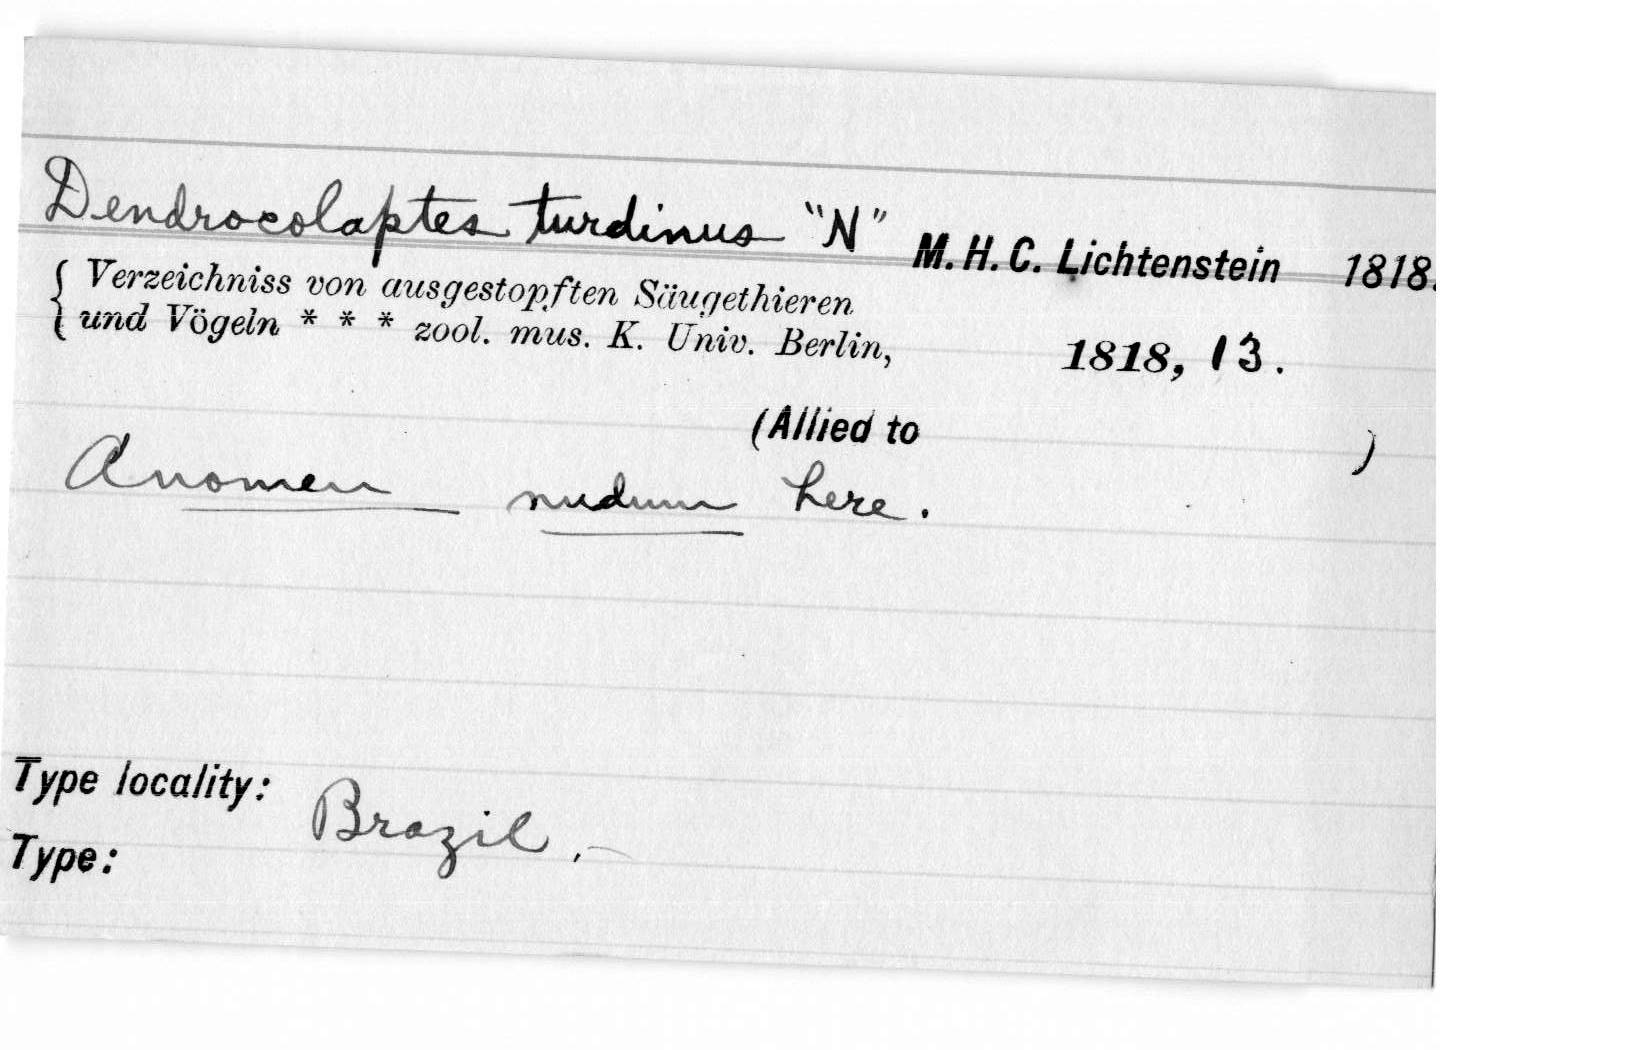 Dendrocolaptes turdinus "N" M. H. C. Lichtenstein 1818.
Verzeichniss von ausgestopften Säugethieren
und Vögeln * * * zool. mus. K. Univ. Berlin, 1818, 13.
(Allied to )
A nomen nudum here.
Type locality: Brazil.
Type: